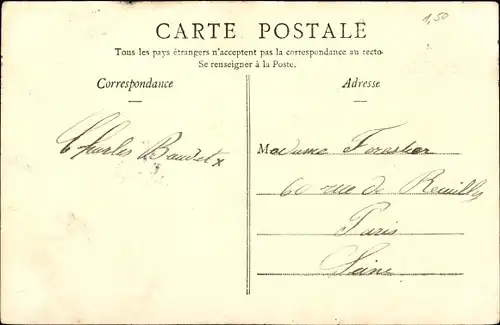 CARTE POSTALE
1,50
Tous les pays étrangers n'acceptent pas la correspondance au recto.
Se renseigner à la Poste.
Correspondance
Adresse
Charles Baudet
Madame Forestier
60 rue de Reuilly
Paris
Seine